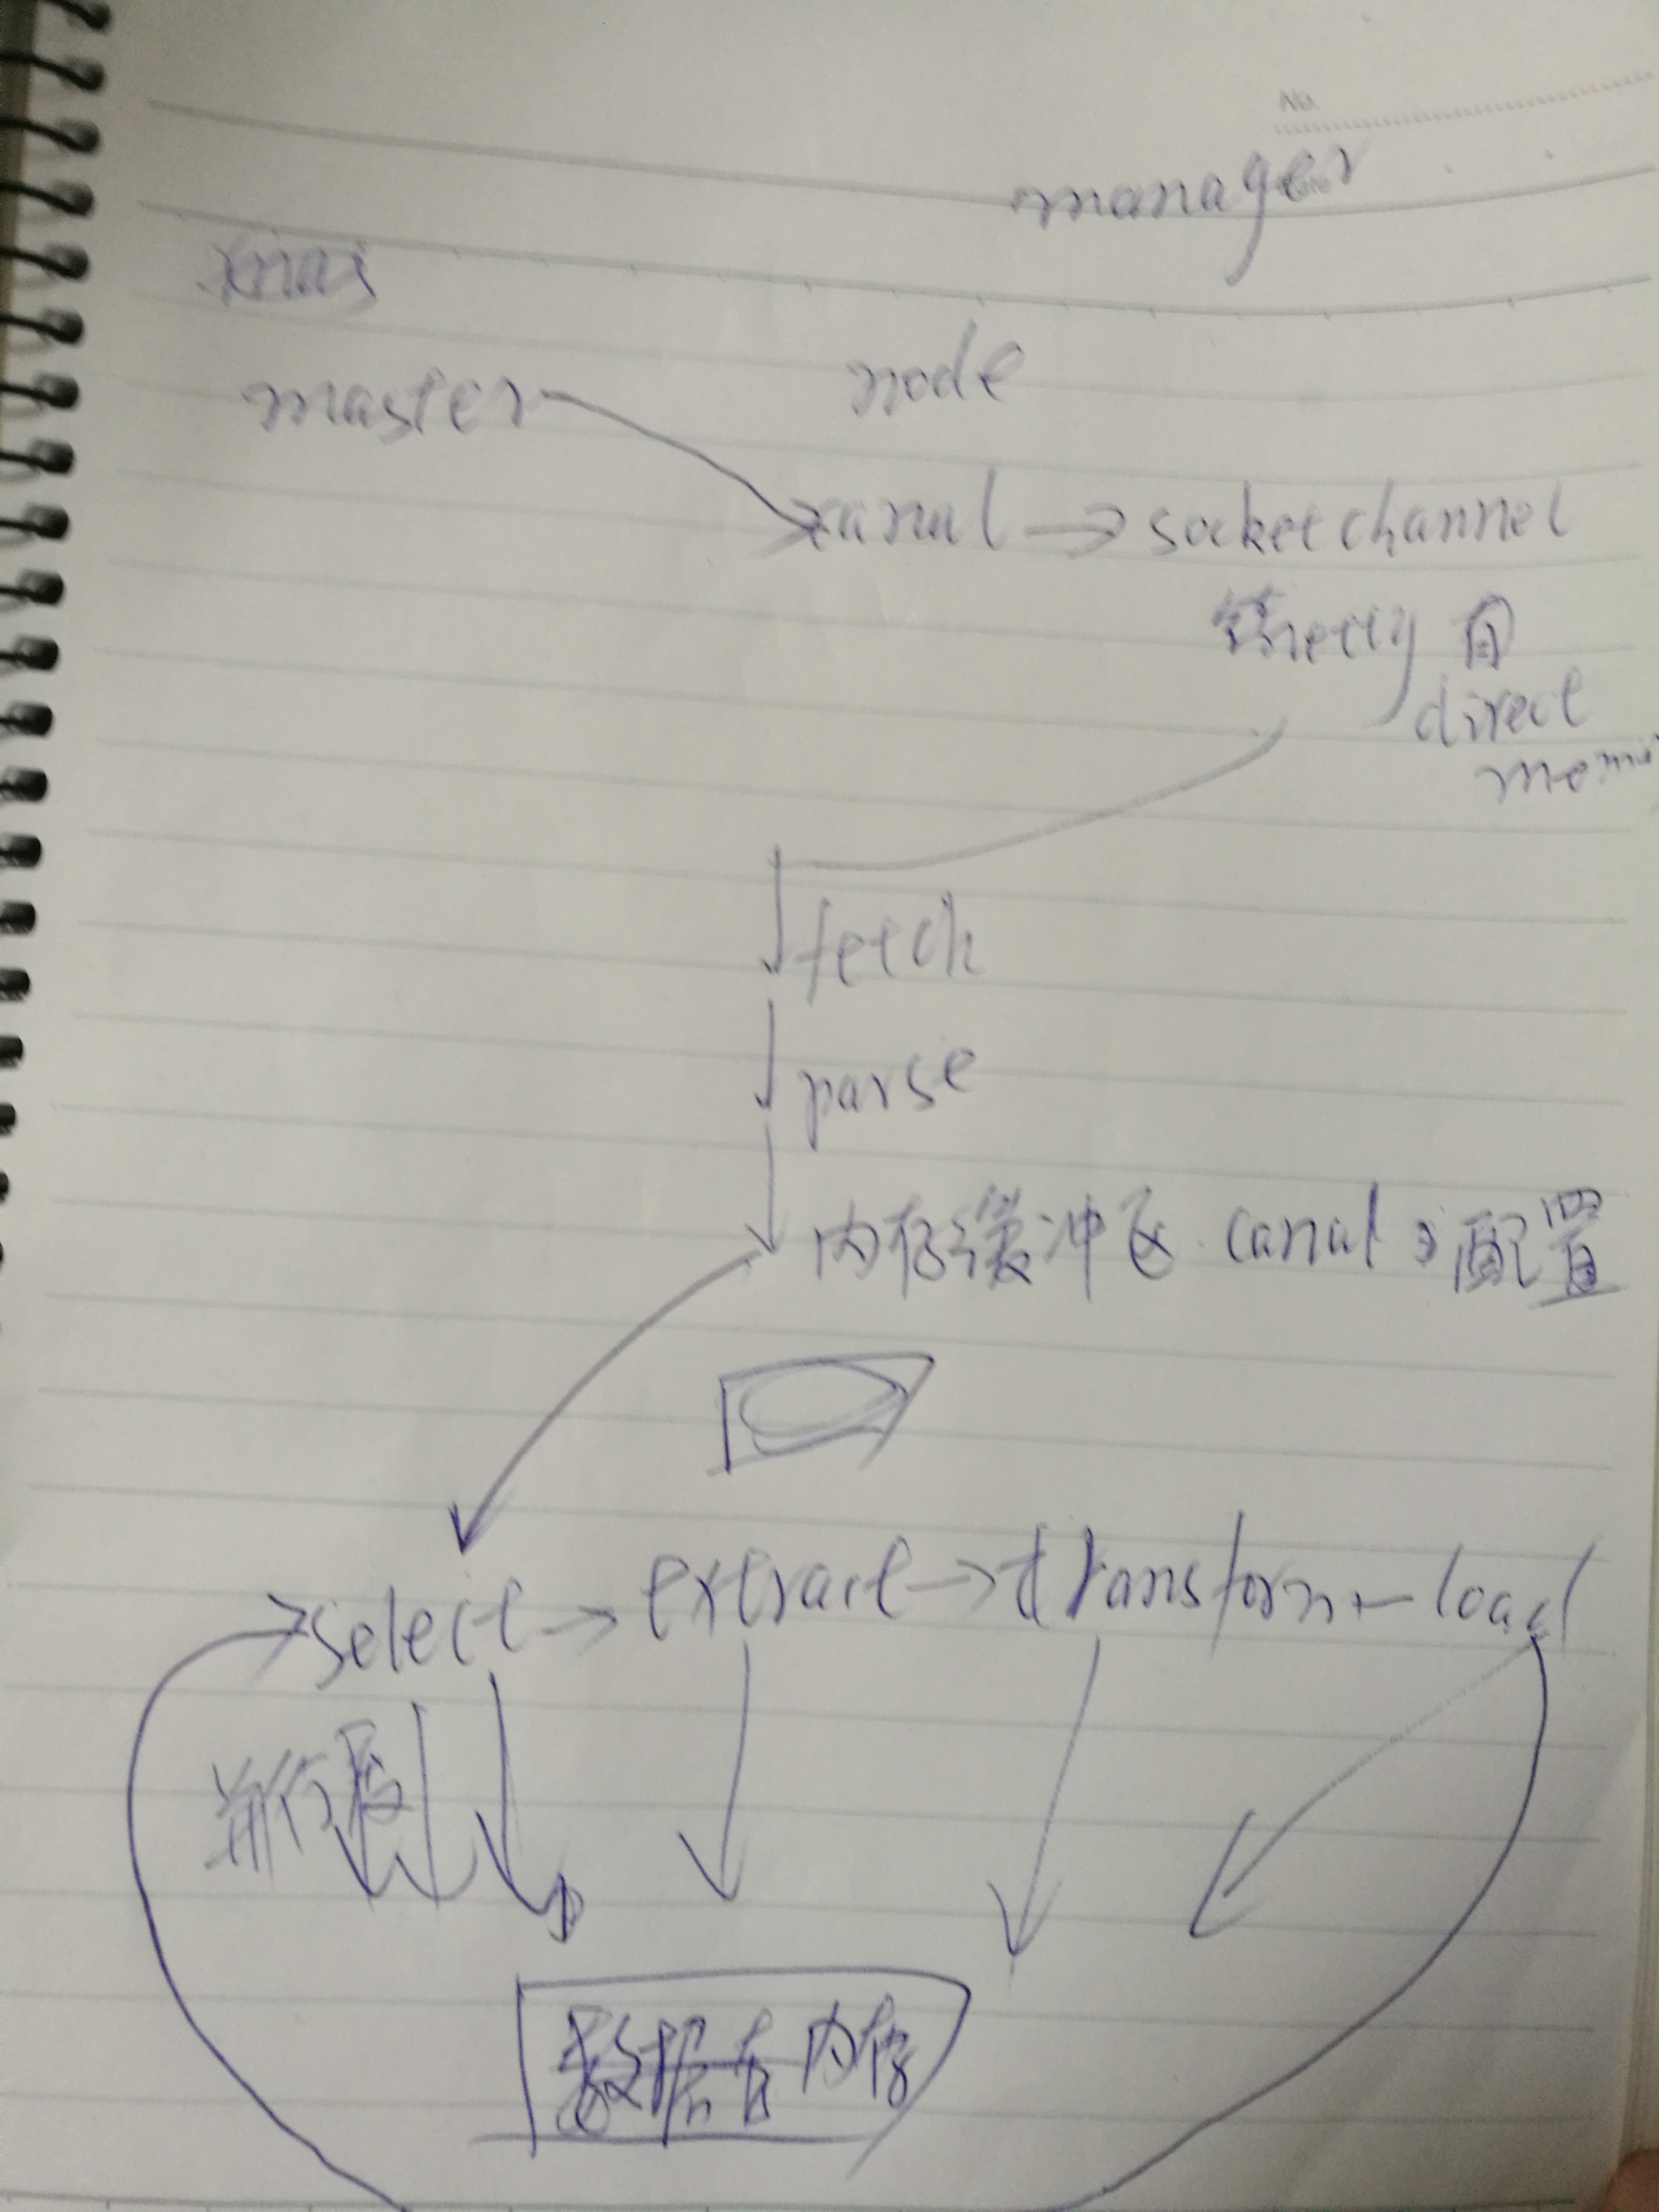 No.
manager
xmas
master
node
canal → socketchannel
netty 自
direct
fetch
parse
内存缓冲区 canal 配置
select → extract → transform ← load
并行度
数据占内存